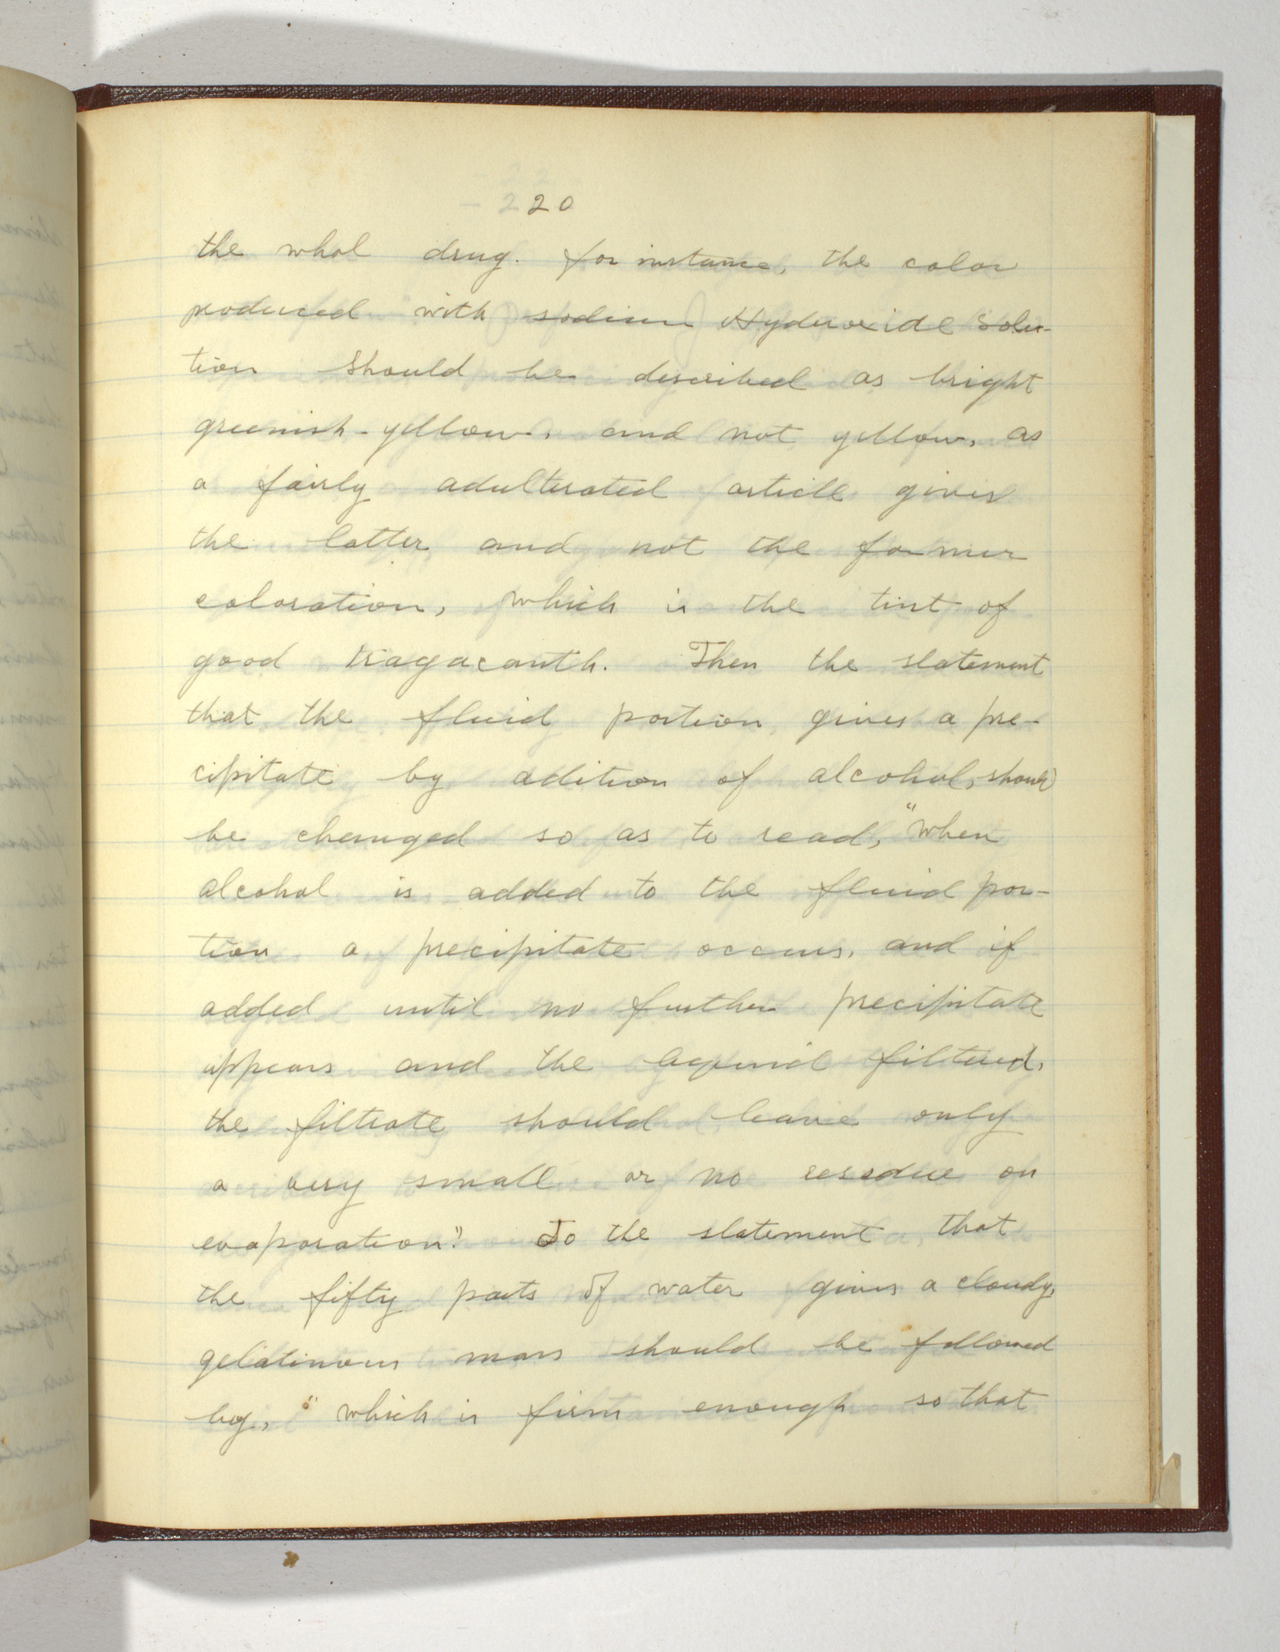 220
the whol drug. for instance, the color
produced with sodium Hydroxide solu-
tion should be described as bright
greenish-yellow, and not yellow, as
a fairly adulterated article gives
the latter and not the former
coloration, which is the tint of
good tragacanth. Then the statement
that the fluid portion gives a pre-
cipitate by adition of alcohol, should
be changed so as to read, "when
alcohol is added to the fluid por-
tion a precipitate occurs, and if
added until no further precipitate
appears and the liquid filtered,
the filtrate should leave only
a very small or no resedue on
evaporation". To the statement that
the fifty parts of water gives a cloudy,
gelatinous mass should be followed
by, "which is firm enough so that